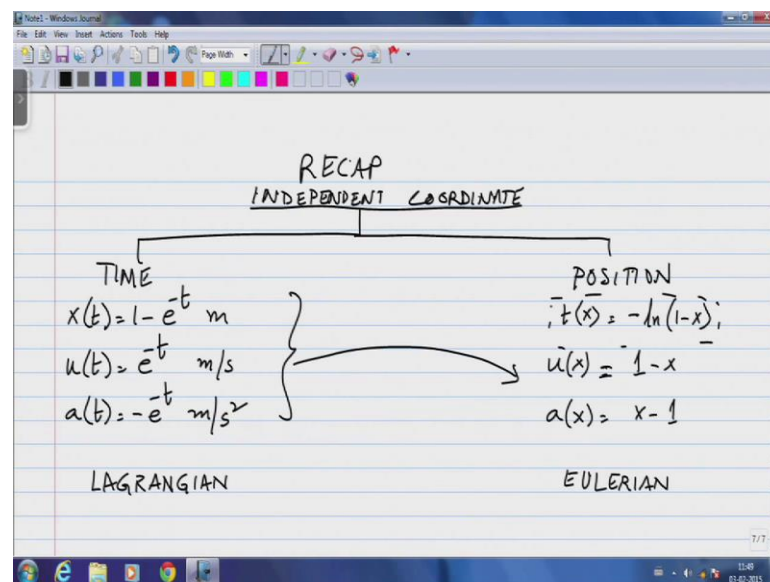 Note1 - Windows Journal
File Edit View Insert Actions Tools Help
Page Width
RECAP
INDEPENDENT COORDINATE
TIME
x(t) = 1 - e^-t m
u(t) = e^-t m/s
a(t) = -e^-t m/s²
LAGRANGIAN
POSITION
t(x) = -ln(1-x);
u(x) = 1-x
a(x) = x-1
EULERIAN
7/7
11:49
03-02-2015